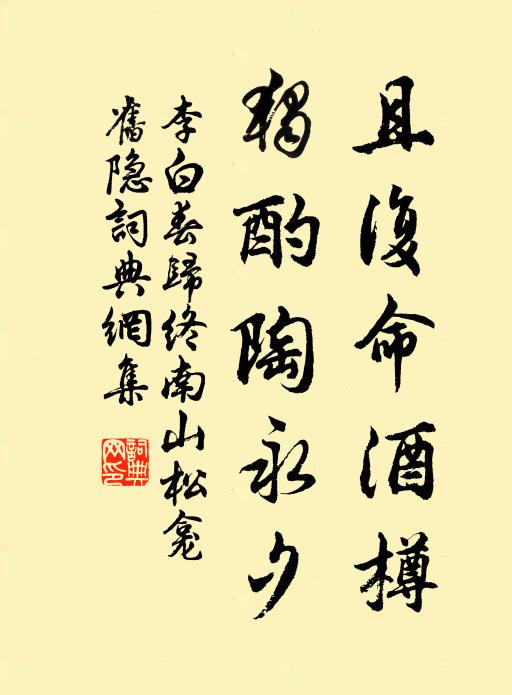 且復命酒樽
獨酌陶永夕
李白春歸終南山松龕
舊隐詞典網集
詞典
网印